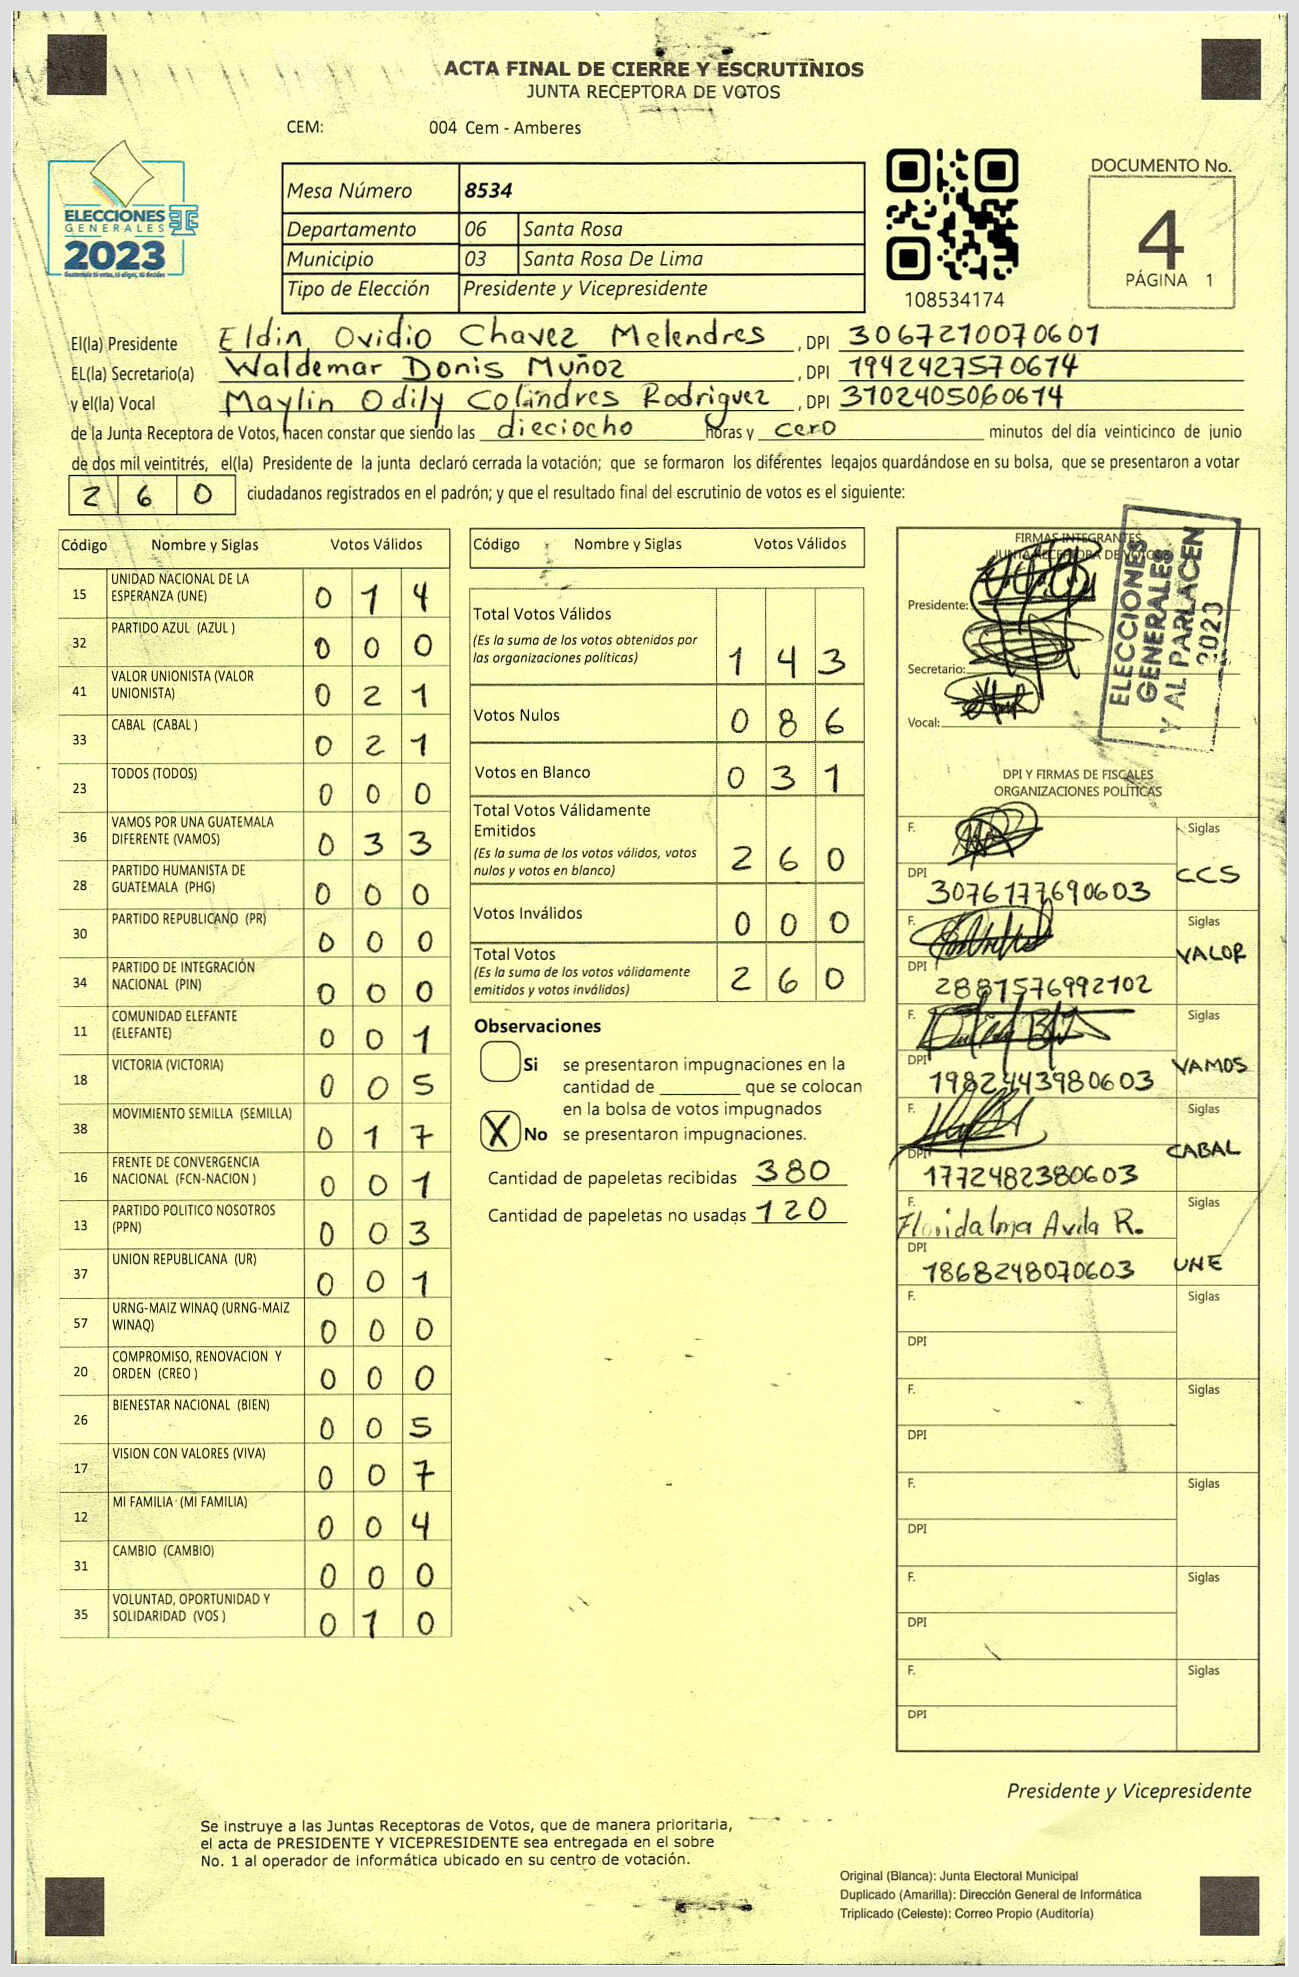 ACTA FINAL DE CIERRE Y ESCRUTINIOS
JUNTA RECEPTORA DE VOTOS
CEM: 004 Cem - Amberes
ELECCIONES
GENERALES
2023
Guatemala tú votas, tú eliges, tú decides
Mesa Número 8534
Departamento 06 Santa Rosa
Municipio 03 Santa Rosa De Lima
Tipo de Elección Presidente y Vicepresidente
108534174
DOCUMENTO No.
4
PÁGINA 1
El(la) Presidente Eldin Ovidio Chavez Melendres , DPI 3067210070601
EL(la) Secretario(a) Waldemar Donis Muñoz , DPI 1942427570614
y el(la) Vocal Maylin Odily Colindres Rodriguez , DPI 3102405060614
de la Junta Receptora de Votos, hacen constar que siendo las dieciocho horas y cero minutos del día veinticinco de junio
de dos mil veintitrés, el(la) Presidente de la junta declaró cerrada la votación; que se formaron los diferentes legajos guardándose en su bolsa, que se presentaron a votar
2 6 0 ciudadanos registrados en el padrón; y que el resultado final del escrutinio de votos es el siguiente:
Código Nombre y Siglas Votos Válidos
15 UNIDAD NACIONAL DE LA ESPERANZA (UNE) 0 1 4
32 PARTIDO AZUL (AZUL ) 0 0 0
41 VALOR UNIONISTA (VALOR UNIONISTA) 0 2 1
33 CABAL (CABAL ) 0 2 1
23 TODOS (TODOS) 0 0 0
36 VAMOS POR UNA GUATEMALA DIFERENTE (VAMOS) 0 3 3
28 PARTIDO HUMANISTA DE GUATEMALA (PHG) 0 0 0
30 PARTIDO REPUBLICANO (PR) 0 0 0
34 PARTIDO DE INTEGRACIÓN NACIONAL (PIN) 0 0 0
11 COMUNIDAD ELEFANTE (ELEFANTE) 0 0 1
18 VICTORIA (VICTORIA) 0 0 5
38 MOVIMIENTO SEMILLA (SEMILLA) 0 1 7
16 FRENTE DE CONVERGENCIA NACIONAL (FCN-NACION ) 0 0 1
13 PARTIDO POLITICO NOSOTROS (PPN) 0 0 3
37 UNION REPUBLICANA (UR) 0 0 1
57 URNG-MAIZ WINAQ (URNG-MAIZ WINAQ) 0 0 0
20 COMPROMISO, RENOVACION Y ORDEN (CREO ) 0 0 0
26 BIENESTAR NACIONAL (BIEN) 0 0 5
17 VISION CON VALORES (VIVA) 0 0 7
12 MI FAMILIA (MI FAMILIA) 0 0 4
31 CAMBIO (CAMBIO) 0 0 0
35 VOLUNTAD, OPORTUNIDAD Y SOLIDARIDAD (VOS ) 0 1 0
Código Nombre y Siglas Votos Válidos
Total Votos Válidos
(Es la suma de los votos obtenidos por
las organizaciones políticas) 1 4 3
Votos Nulos 0 8 6
Votos en Blanco 0 3 1
Total Votos Válidamente
Emitidos
(Es la suma de los votos válidos, votos
nulos y votos en blanco) 2 6 0
Votos Inválidos 0 0 0
Total Votos
(Es la suma de los votos válidamente
emitidos y votos inválidos) 2 6 0
Observaciones
Si se presentaron impugnaciones en la
cantidad de ________ que se colocan
en la bolsa de votos impugnados
X No se presentaron impugnaciones.
Cantidad de papeletas recibidas 380
Cantidad de papeletas no usadas 120
FIRMAS INTEGRANTES
JUNTA RECEPTORA DE VOTOS
Presidente:
Secretario:
Vocal:
ELECCIONES
GENERALES
Y AL PARLACEN
2023
DPI Y FIRMAS DE FISCALES
ORGANIZACIONES POLÍTICAS
F. Siglas
DPI 3076177690603 CCS
F. Siglas
DPI 2881576992102 VALOR
F. Siglas
DPI 1982443980603 VAMOS
F. Siglas
DPI 1772482380603 CABAL
F. Floridalma Avila R. Siglas
DPI 1868248070603 UNE
F. Siglas
DPI
F. Siglas
DPI
F. Siglas
DPI
F. Siglas
DPI
F. Siglas
DPI
Presidente y Vicepresidente
Se instruye a las Juntas Receptoras de Votos, que de manera prioritaria,
el acta de PRESIDENTE Y VICEPRESIDENTE sea entregada en el sobre
No. 1 al operador de informática ubicado en su centro de votación.
Original (Blanca): Junta Electoral Municipal
Duplicado (Amarilla): Dirección General de Informática
Triplicado (Celeste): Correo Propio (Auditoría)